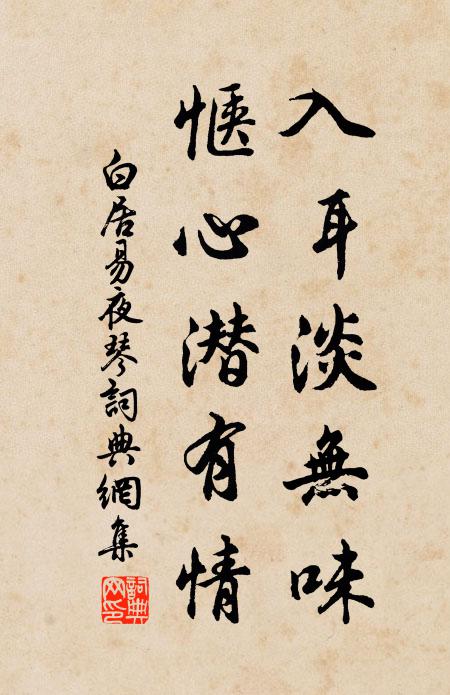 入耳淡無味
惬心潜有情
白居易夜琴詞典網集
詞典網印